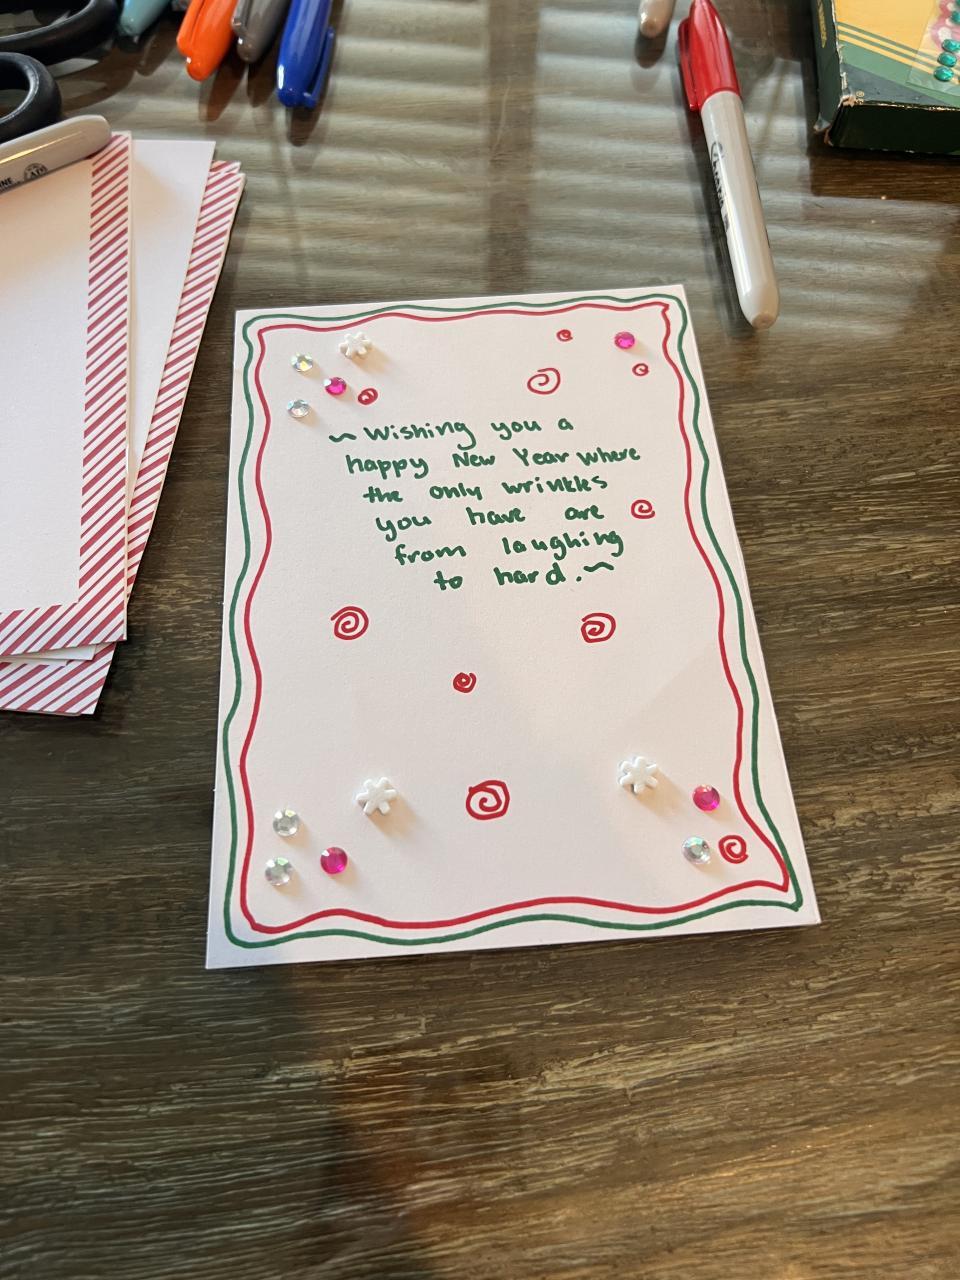 ~ Wishing you a
happy New Year where
the only wrinkles
you have are
from laughing
to hard. ~